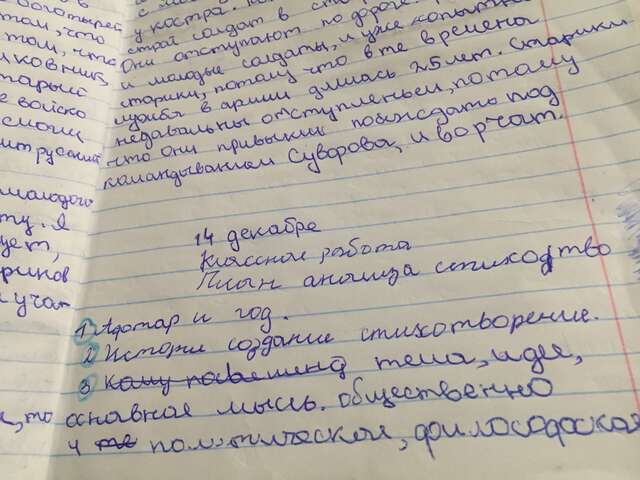 боготырей
том, что
том, что
лковник,
старый
е войско
смоги
ит русский
молодого
ту. Я
ует,
риков
и учат
у костра.
страй солдат в
Они отступают по дороге.
и молодые солдаты, и уже копытн
старики, потому что в те времена
служба в армии длилась 25 лет. Старики
недавальны отступленьем, потому
что они привыкли побеждать под
командыванием Суворова, и ворчат.
14 декабре
Классное работа
Плогн анализа стиходтво
1) Афтар и год.
2 Историе создание стихотворение.
3 Кому посвешенд тема, идее,
основное мысль. общественно
4 те политическое, филосодоская